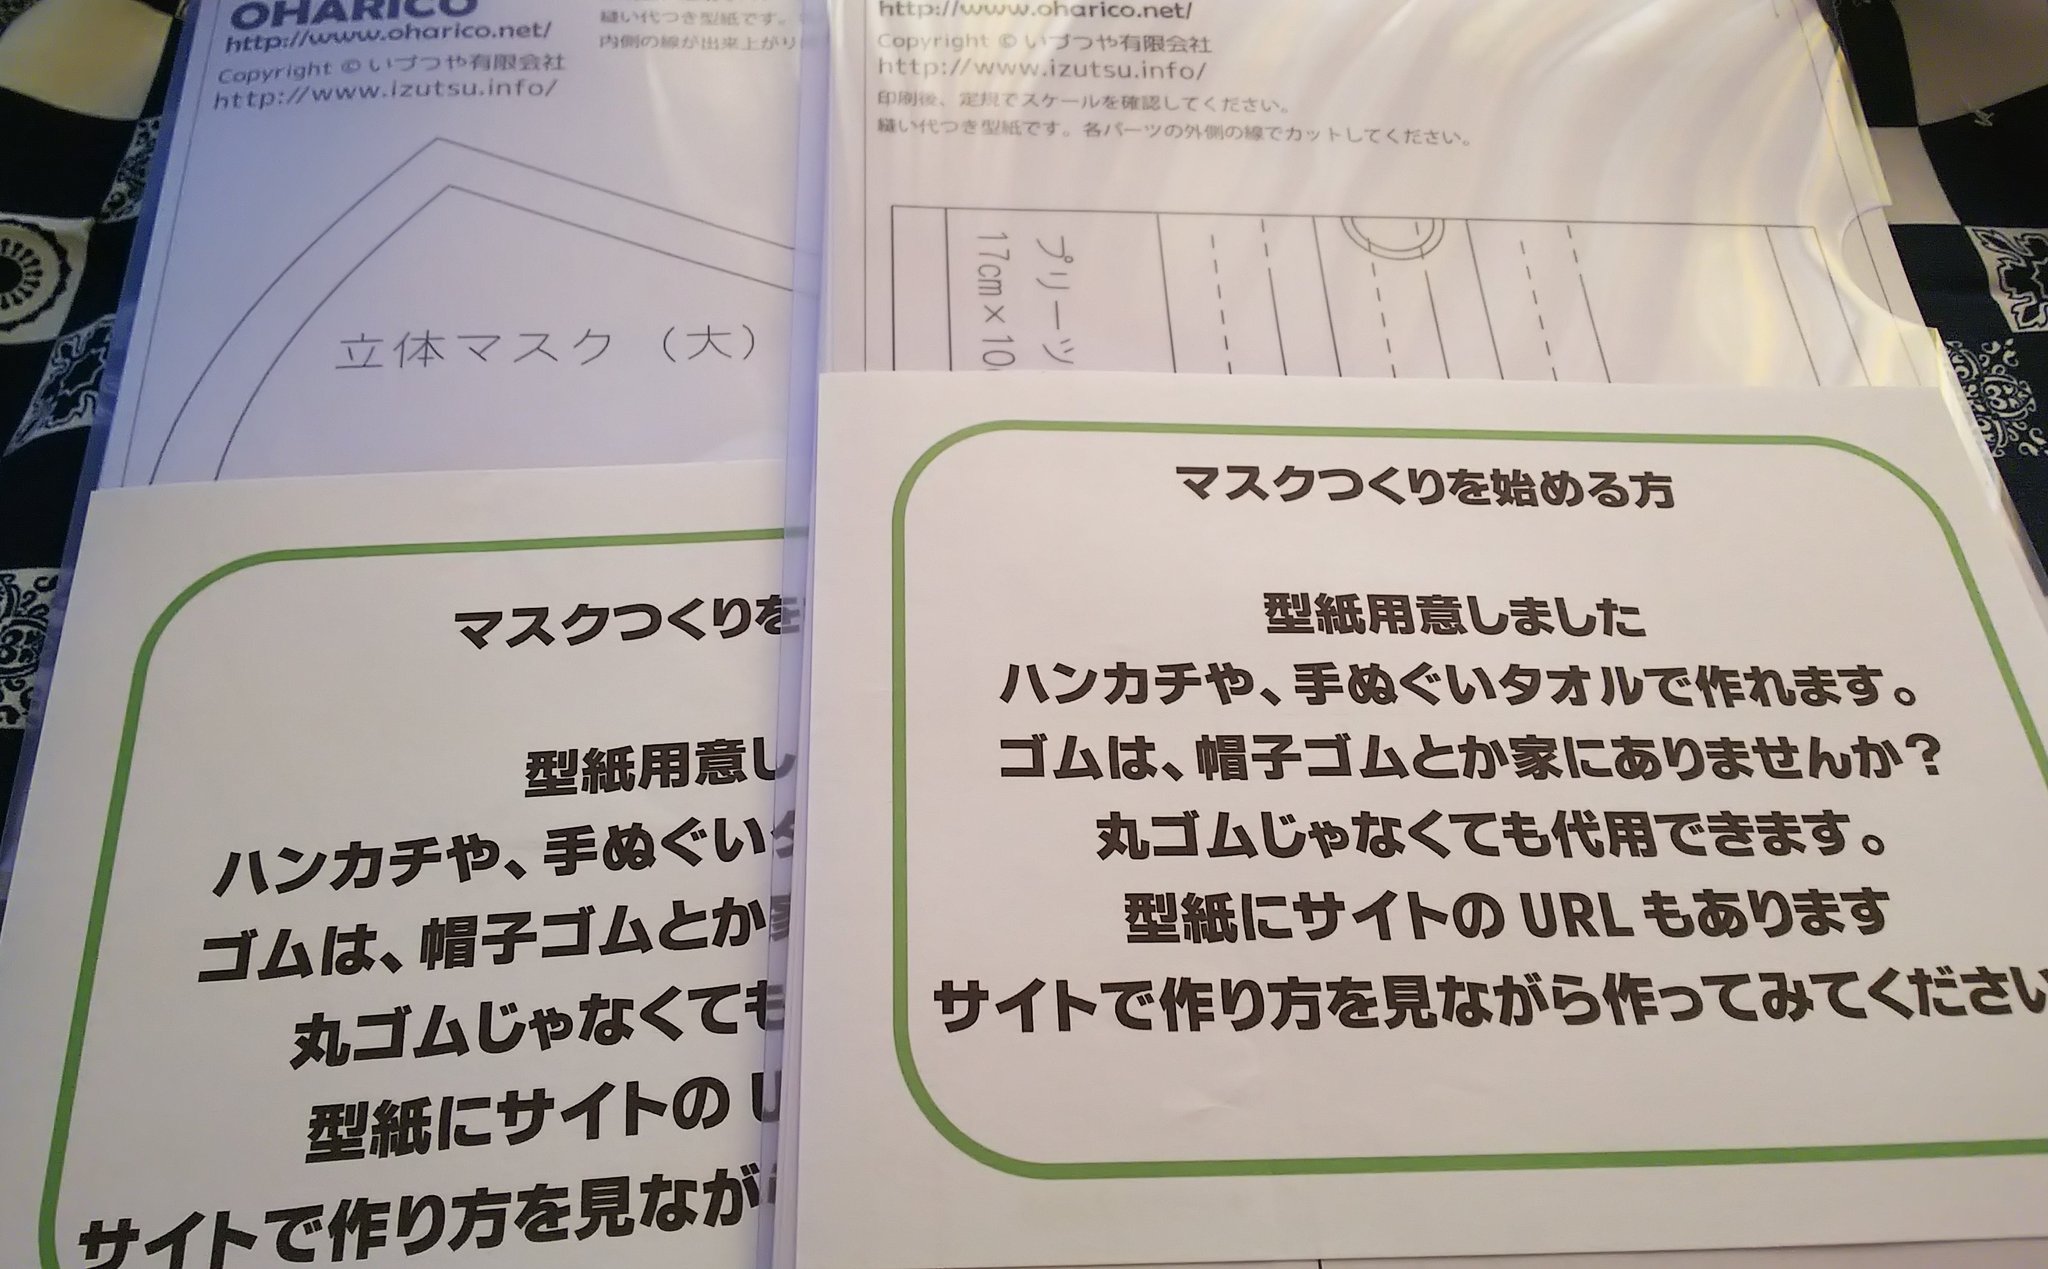 OHARICO
http://www.oharico.net/
Copyright © いづつや有限会社
http://www.izutsu.info/
縫い代つき型紙です。
内側の線が出来上がり
立体マスク（大）
http://www.oharico.net/
Copyright © いづつや有限会社
http://www.izutsu.info/
印刷後、定規でスケールを確認してください。
縫い代つき型紙です。各パーツの外側の線でカットしてください。
プリーツ
17cm×10
マスクつくりを
型紙用意し
ハンカチや、手ぬぐい
ゴムは、帽子ゴムとか
丸ゴムじゃなくても
型紙にサイトの U
サイトで作り方を見なが
マスクつくりを始める方
型紙用意しました
ハンカチや、手ぬぐいタオルで作れます。
ゴムは、帽子ゴムとか家にありませんか？
丸ゴムじゃなくても代用できます。
型紙にサイトの URL もあります
サイトで作り方を見ながら作ってみてください